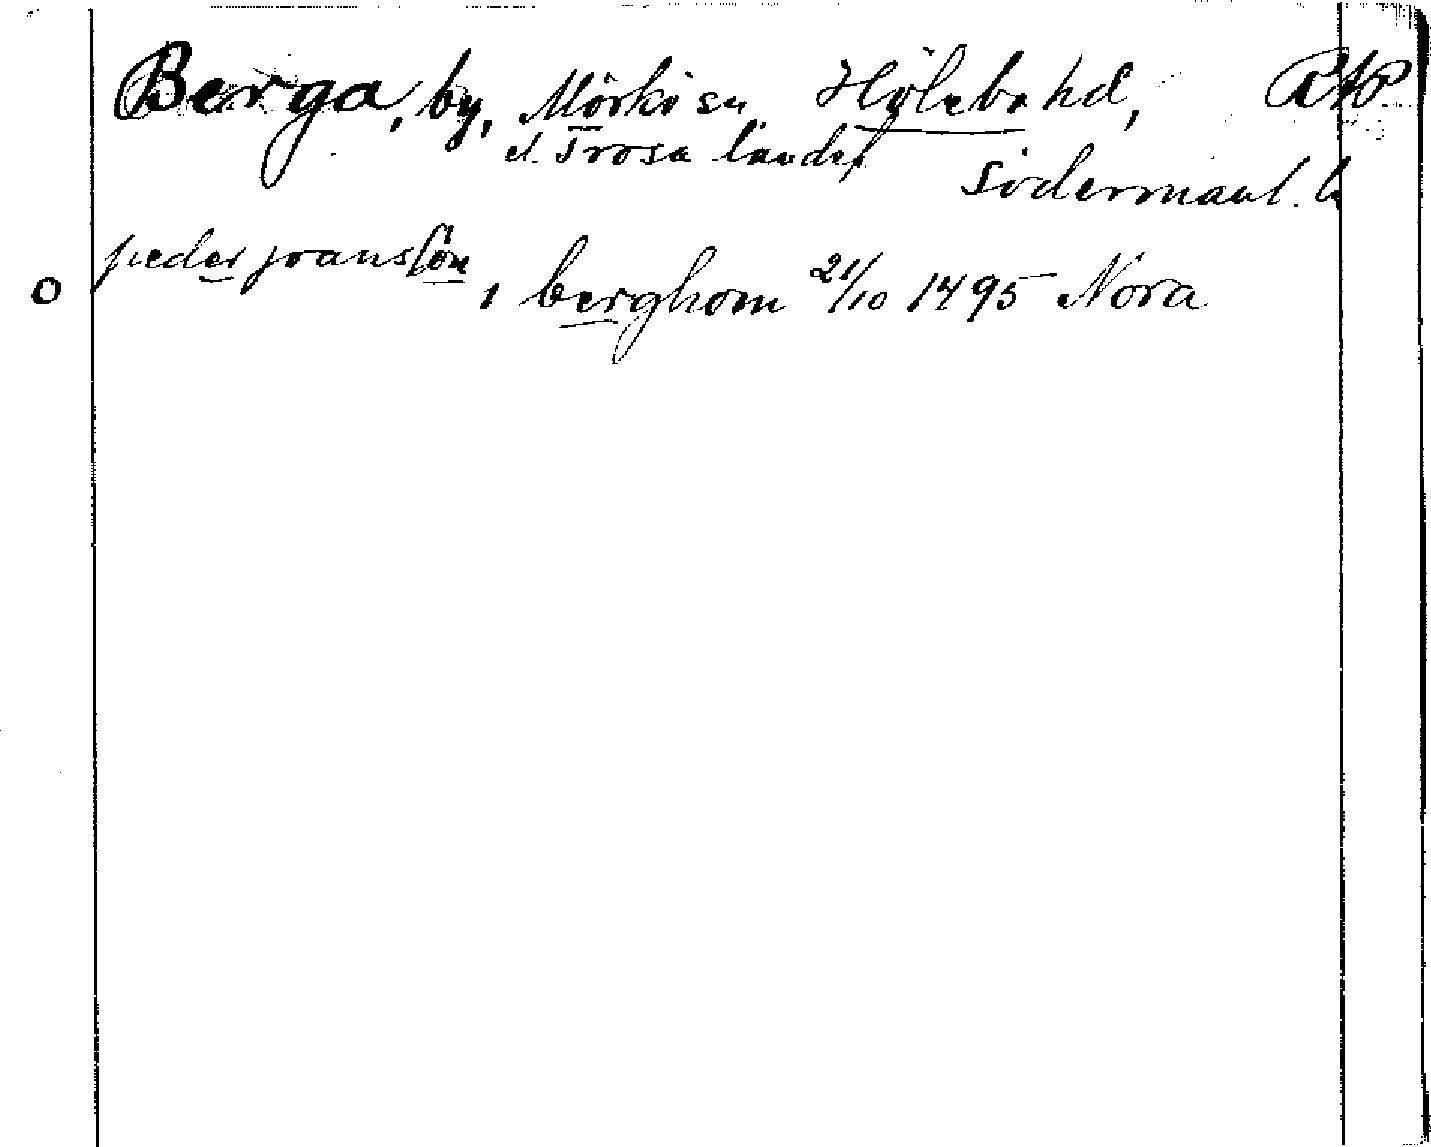 Berga, by, Mörkö sn Hölebo hd, RAP
el. Trosa landsf Södermanl. l.
peder joansson
O i berghom 21/10 1495 Nora